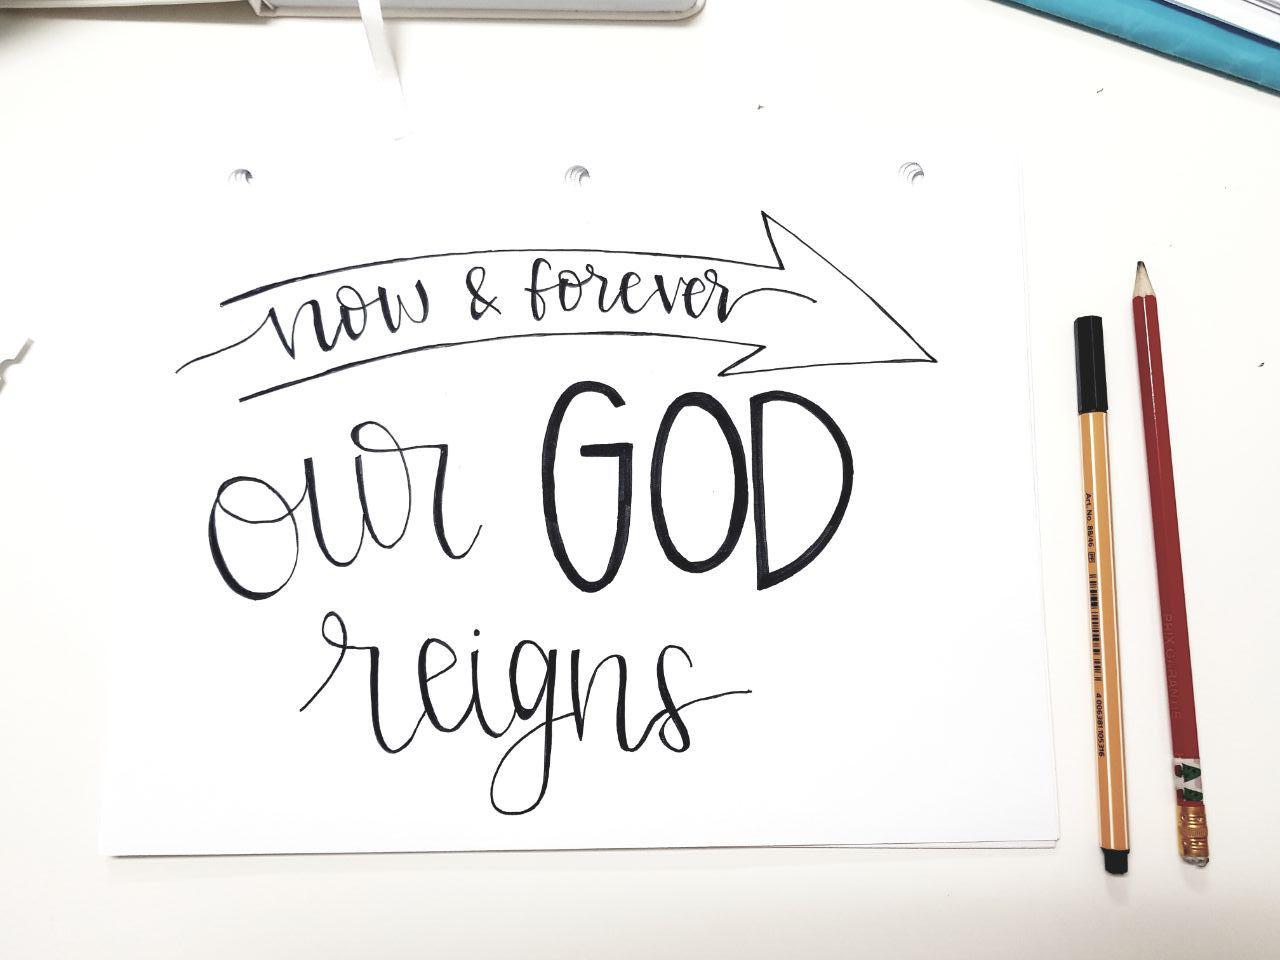 now & forever
our GOD
reigns
Art. No. 88/46
4 006381 105316